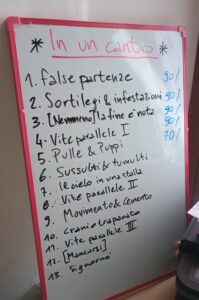 * In un cantio *
1. false partenze 90%
2. Sortilegi & infestazioni 90%
3. [Nemmeno] la fine è nota 90%
4. Vite parallele I 90%
5. Pulle & Puppi 70%
6. Sussulti & tumulti
7. Il cielo in una stalla
8. Vite parallele II
9. Movimento & Cemento
10. Cranio trapanato
11. Vite parallele III
12. [Mancarsi]
13. Signorno